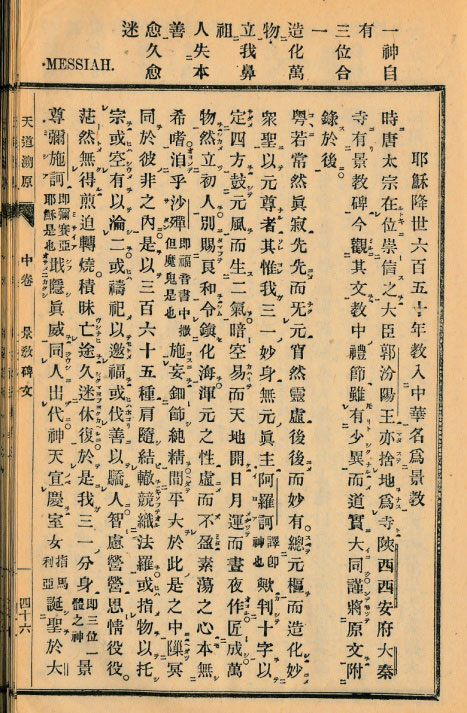 一神自
有
三位合
一
造化萬
物
立我鼻
祖
人失本
善
愈久愈
迷
MESSIAH.
耶穌降世六百五十年教入中華名爲景教
時唐太宗在位崇信之大臣郭汾陽王亦捨地爲寺陝西西安府大秦
寺有景教碑今觀其文教中禮節雖有少異而道實大同謹將原文附
錄於後。
粤若常然眞寂先先而旡元窅然靈虛後後而妙有總元樞而造化妙
衆聖以元尊者其惟我三一妙身無元眞主阿羅訶譯卽神也歟判十字以
定四方鼓元風而生二氣暗空易而天地開日月運而晝夜作匠成萬
物然立初人別賜良和令鎭化海渾元之性虛而不盈素蕩之心本無
希嗜洎乎沙殫卽福音書中撒但魔鬼是也施妄鈿飾純精間平大於此是之中隟冥
同於彼非之內是以三百六十五種肩隨結轍競織法羅或指物以托
宗或空有以淪二或禱祀以邀福或伐善以驕人智慮營營思情役役
茫然無得煎迫轉燒積昧亡途久迷休復於是我三一分身卽三位一體之神景
尊彌施訶卽彌賽亞耶穌是也戢隱眞威同人出代神天宣慶室女指馬利亞誕聖於大
天道溯原 中卷 景教碑文 四十六